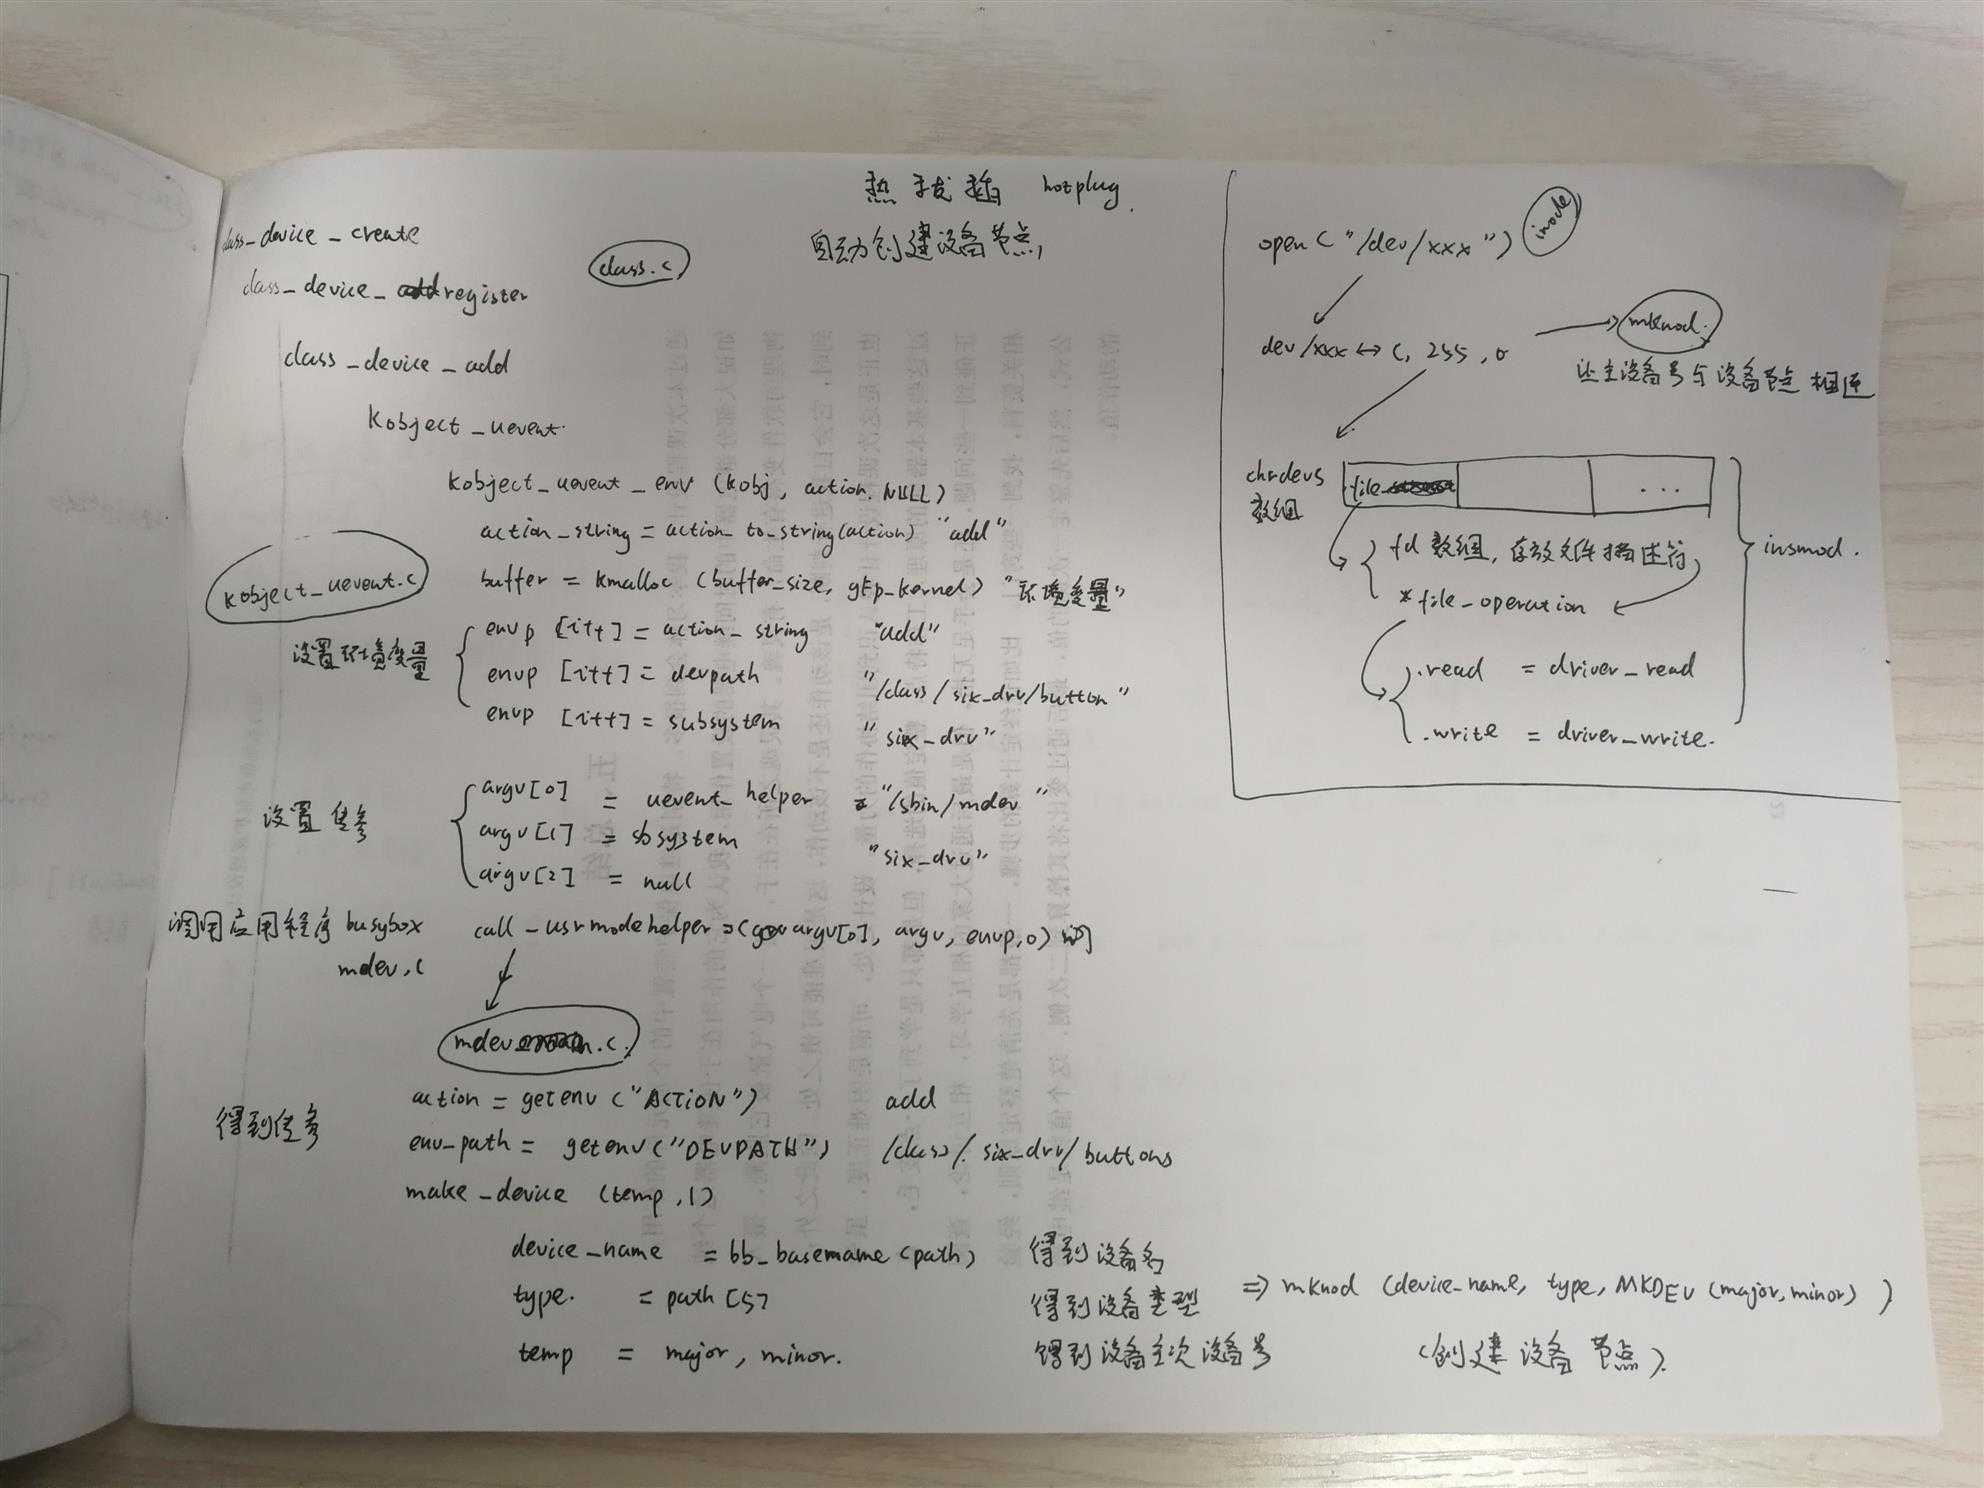 热拔插 hotplug.
自动创建设备节点
class_device_create
class.c
class_device_register
class_device_add
kobject_uevent
kobject_uevent_env (kobj, action, NULL)
action_string = action_to_string(action) "add"
kobject_uevent.c
buffer = kmalloc (buffer_size, gfp_kernel) "环境变量"
设置环境变量
envp [i++] = action_string "add"
envp [i++] = devpath "/class/six_drv/button"
envp [i++] = subsystem "six_drv"
设置传参
argv[0] = uevent_helper = "/sbin/mdev"
argv[1] = sbsystem "six_drv"
argv[2] = null
调用应用程序 busybox
mdev.c
call_usrmodehelper (argv[0], argv, envp, 0)
mdev .c
得到传参
action = getenv ("ACTiON") add
env_path = getenv ("DEVPATH") /class/. six_drv/buttons
make_device (temp, 1)
device_name = bb_basemame (path) 得到设备名
type. = path [5] 得到设备类型
temp = major, minor. 得到设备主次设备号
=> mknod (device_name, type, MKDEV (major, minor) )
(创建设备节点).
open ("/dev/xxx") inode
dev/xxx ↔ c, 255, 0 → mknod.
让主设备号与设备节点相连
chrdevs
数组
file
...
fd 数组, 存放文件描述符
insmod.
*file_operation
.read = driver_read
.write = driver_write.